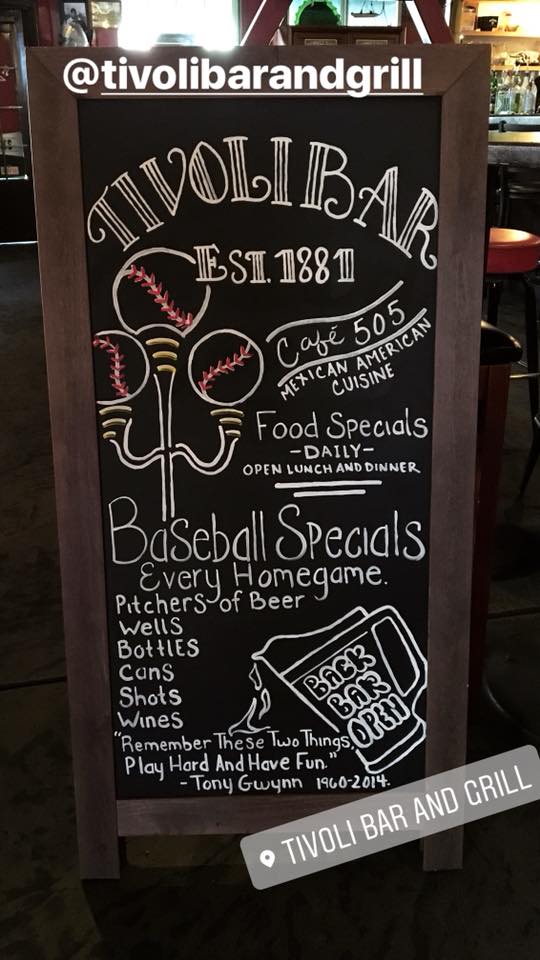 @tivolibarandgrill
TIVOLI BAR
EST. 1881
Café 505
MEXICAN AMERICAN
CUISINE
Food Specials
-DAILY-
OPEN LUNCH AND DINNER
Baseball Specials
Every Homegame.
Pitchers of Beer
Wells
Bottles
Cans
Shots
Wines
BACK
BAR
OPEN
"Remember These Two Things,
Play Hard And Have Fun."
-Tony Gwynn 1960-2014.
TIVOLI BAR AND GRILL